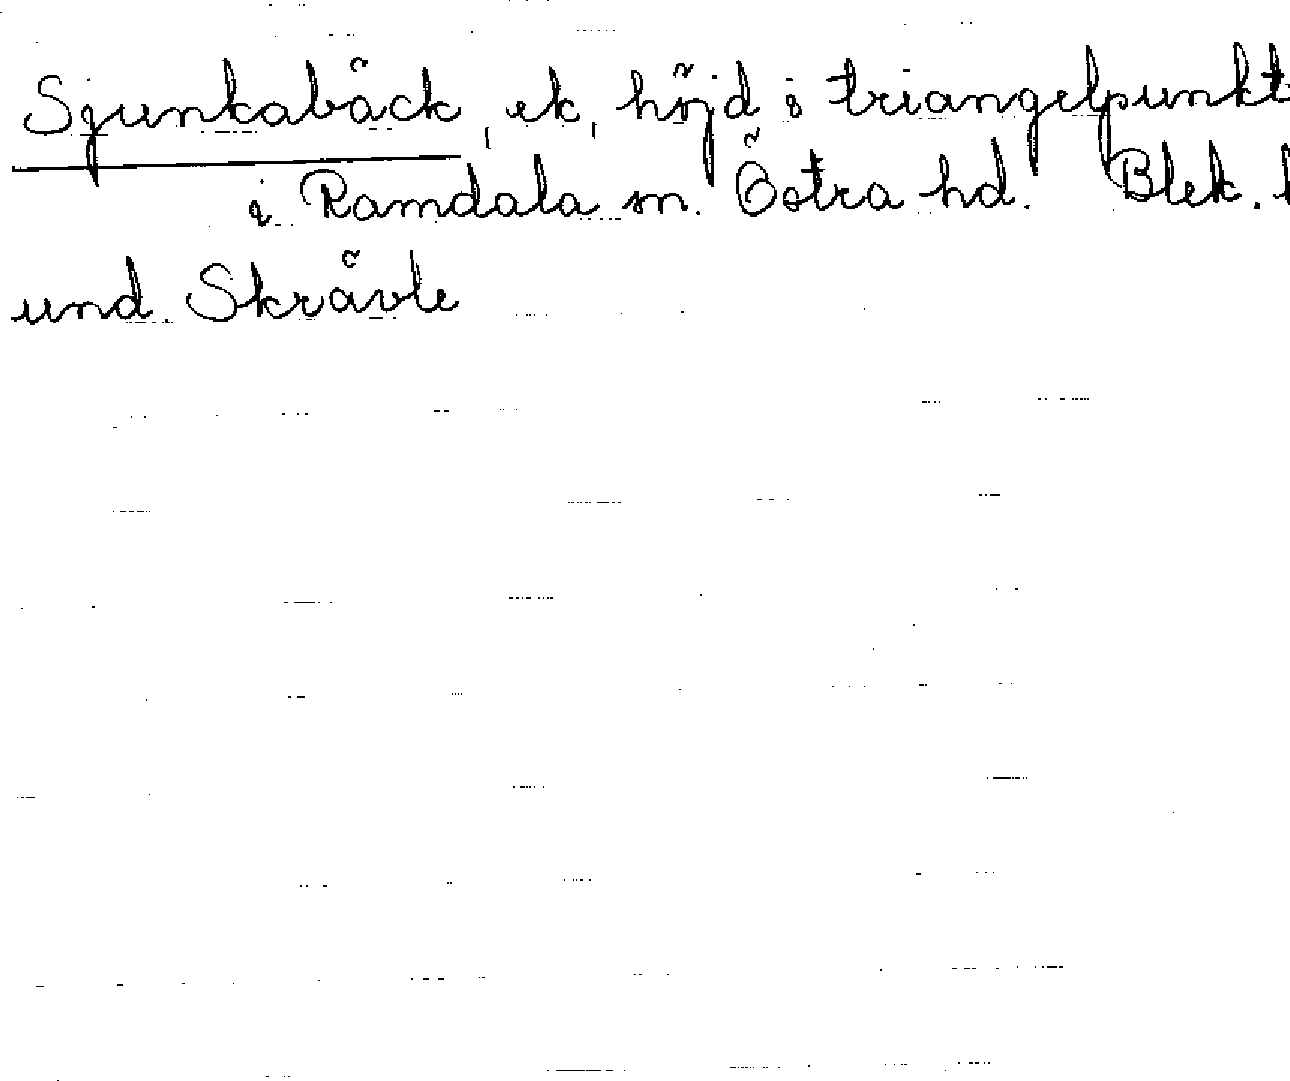 Sjunkabäck, ek, höjd i triangelpunkt
i Ramdala sn. Östra hd. Blek.
und. Skrävle